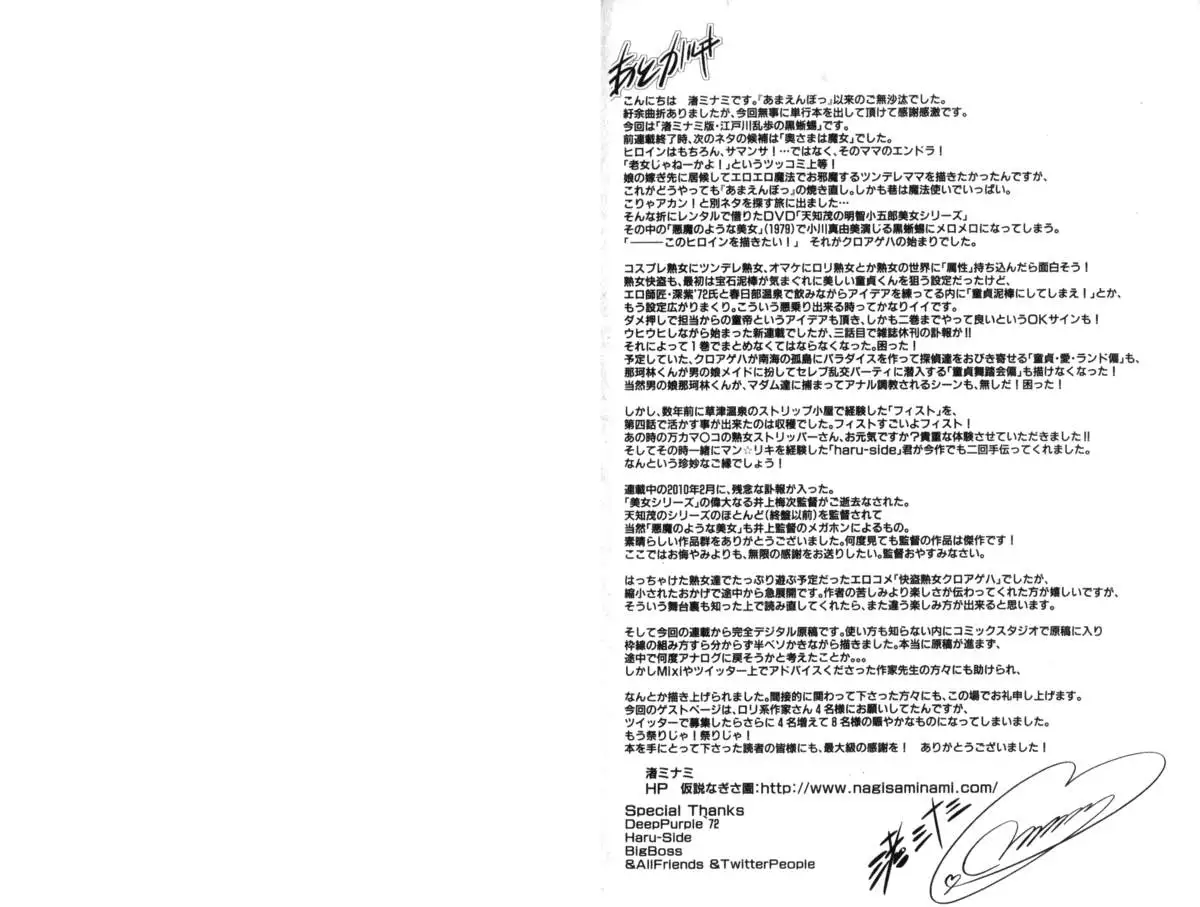 あとがき
こんにちは　渚ミナミです。『あまえんぼっ』以来のご無沙汰でした。
紆余曲折ありましたが、今回無事に単行本を出して頂けて感謝感激です。
今回は「渚ミナミ版・江戸川乱歩の黒蜥蜴」です。
前連載終了時、次のネタの候補は「奥さまは魔女」でした。
ヒロインはもちろん、サマンサ！…ではなく、そのママのエンドラ！
「老女じゃねーかよ！」というツッコミ上等！
娘の嫁ぎ先に居候してエロエロ魔法でお邪魔するツンデレママを描きたかったんですが、
これがどうやっても『あまえんぼっ』の焼き直し。しかも巷は魔法使いでいっぱい。
こりゃアカン！と別ネタを探す旅に出ました…
そんな折にレンタルで借りたDVD「天知茂の明智小五郎美女シリーズ」
その中の「悪魔のような美女」(1979)で小川真由美演じる黒蜥蜴にメロメロになってしまう。
「―――このヒロインを描きたい！」　それがクロアゲハの始まりでした。
コスプレ熟女にツンデレ熟女、オマケにロリ熟女とか熟女の世界に「属性」持ち込んだら面白そう！
熟女快盗も、最初は宝石泥棒が気まぐれに美しい童貞くんを狙う設定だったけど、
エロ師匠・深紫'72氏と春日部温泉で飲みながらアイデアを練ってる内に「童貞泥棒にしてしまえ！」とか、
もう設定広がりまくり。こういう悪乗り出来る時ってかなりイイです。
ダメ押しで担当からの童帝というアイデアも頂き、しかも二巻までやって良いというOKサインも！
ウヒウヒしながら始まった新連載でしたが、三話目で雑誌休刊の訃報が!!
それによって１巻でまとめなくてはならなくなった。困った！
予定していた、クロアゲハが南海の孤島にパラダイスを作って探偵達をおびき寄せる「童貞・愛・ランド編」も、
那珂林くんが男の娘メイドに扮してセレブ乱交パーティに潜入する「童貞舞踏会編」も描けなくなった！
当然男の娘那珂林くんが、マダム達に捕まってアナル調教されるシーンも、無しだ！困った！
しかし、数年前に草津温泉のストリップ小屋で経験した「フィスト」を、
第四話で活かす事が出来たのは収穫でした。フィストすごいよフィスト！
あの時の万カマ○コの熟女ストリッパーさん、お元気ですか？貴重な体験させていただきました!!
そしてその時一緒にマン☆リキを経験した「haru-side」君が今作でも二回手伝ってくれました。
なんという珍妙なご縁でしょう！
連載中の2010年2月に、残念な訃報が入った。
「美女シリーズ」の偉大なる井上梅次監督がご逝去なされた。
天知茂のシリーズのほとんど(終盤以前)を監督されて
当然「悪魔のような美女」も井上監督のメガホンによるもの。
素晴らしい作品群をありがとうございました。何度見ても監督の作品は傑作です！
ここではお悔やみよりも、無限の感謝をお送りしたい。監督おやすみなさい。
はっちゃけた熟女達でたっぷり遊ぶ予定だったエロコメ「快盗熟女クロアゲハ」でしたが、
縮小されたおかげで途中から急展開です。作者の苦しみより楽しさが伝わってくれた方が嬉しいですが、
そういう舞台裏も知った上で読み直してくれたら、また違う楽しみ方が出来ると思います。
そして今回の連載から完全デジタル原稿です。使い方も知らない内にコミックスタジオで原稿に入り
枠線の組み方すら分からず半ベソかきながら描きました。本当に原稿が進まず、
途中で何度アナログに戻そうかと考えたことか。。。
しかしMixiやツイッター上でアドバイスくださった作家先生の方々にも助けられ、
なんとか描き上げられました。間接的に関わって下さった方々にも、この場でお礼申し上げます。
今回のゲストページは、ロリ系作家さん４名様にお願いしてたんですが、
ツイッターで募集したらさらに４名増えて８名様の賑やかなものになってしまいました。
もう祭りじゃ！祭りじゃ！
本を手にとって下さった読者の皆様にも、最大級の感謝を！　ありがとうございました！
渚ミナミ
HP　仮説なぎさ園:http://www.nagisaminami.com/
Special Thanks
DeepPurple '72
Haru-Side
BigBoss
&AllFriends &TwitterPeople
渚ミナミ